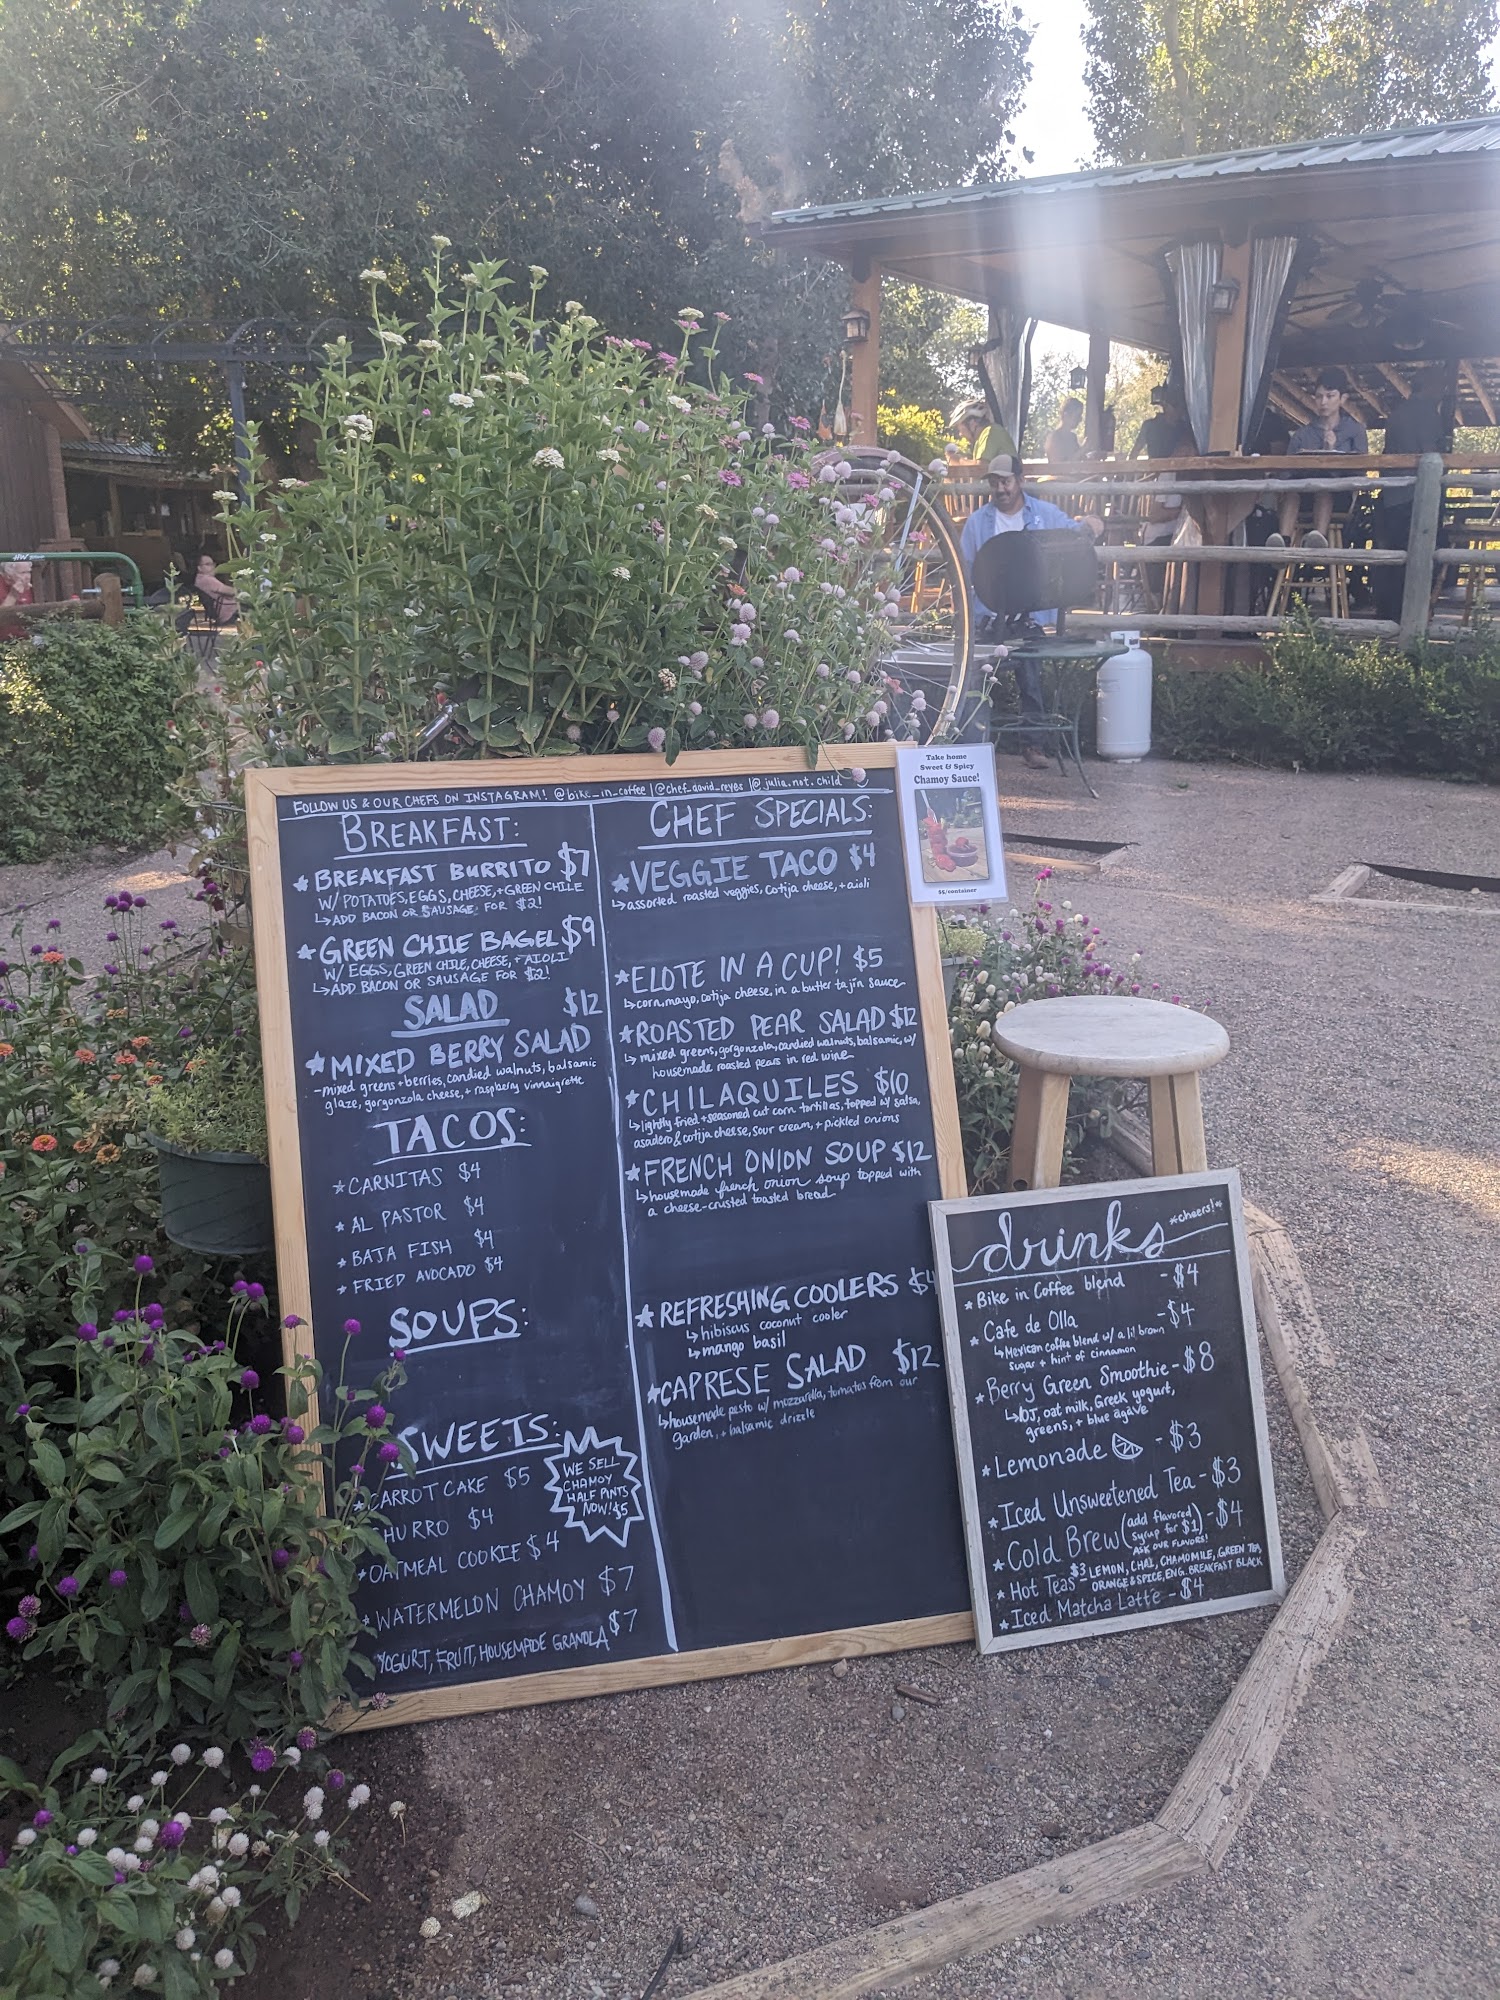 FOLLOW US & OUR CHEFS ON INSTAGRAM! @bike_in_coffee | @chef_david_reyes | @julia.not.child
BREAKFAST:
BREAKFAST BURRITO $7
W/ POTATOES, EGGS, CHEESE, + GREEN CHILE
↳ADD BACON OR SAUSAGE FOR $2!
GREEN CHILE BAGEL $9
W/ EGGS, GREEN CHILE, CHEESE, + AIOLI
↳ADD BACON OR SAUSAGE FOR $2!
SALAD $12
MIXED BERRY SALAD
-mixed greens + berries, candied walnuts, balsamic
glaze, gorgonzola cheese, + raspberry vinnaigrette
TACOS:
CARNITAS $4
AL PASTOR $4
BAJA FISH $4
FRIED AVOCADO $4
SOUPS:
SWEETS:
CARROT CAKE $5
CHURRO $4
OATMEAL COOKIE $4
WATERMELON CHAMOY $7
YOGURT, FRUIT, HOUSEMADE GRANOLA $7
WE SELL
CHAMOY
HALF PINTS
NOW! $5
CHEF SPECIALS:
VEGGIE TACO $4
↳assorted roasted veggies, cotija cheese, + aioli
ELOTE IN A CUP! $5
↳corn, mayo, cotija cheese, in a butter tajín sauce
ROASTED PEAR SALAD $12
↳mixed greens, gorgonzola, candied walnuts, balsamic, w/
housemade roasted pears in red wine
CHILAQUILES $10
↳lightly fried + seasoned cut corn tortillas, topped w/ salsa,
asadero & cotija cheese, sour cream, + pickled onions
FRENCH ONION SOUP $12
↳housemade french onion soup topped with
a cheese-crusted toasted bread
REFRESHING COOLERS $4
↳hibiscus coconut cooler
↳mango basil
CAPRESE SALAD $12
↳housemade pesto w/ mozzarella, tomatoes from our
garden, + balsamic drizzle
Take home
Sweet & Spicy
Chamoy Sauce!
$5/container
drinks *cheers!*
Bike in Coffee blend - $4
Cafe de Olla - $4
↳Mexican coffee blend w/ a lil brown
sugar + hint of cinnamon
Berry Green Smoothie - $8
↳OJ, oat milk, Greek yogurt,
greens, + blue agave
Lemonade - $3
Iced Unsweetened Tea - $3
Cold Brew (add flavored syrup for $1) - $4
ASK OUR FLAVORS!
Hot Teas $3 - LEMON, CHAI, CHAMOMILE, GREEN TEA,
ORANGE & SPICE, ENG. BREAKFAST BLACK
Iced Matcha Latte - $4